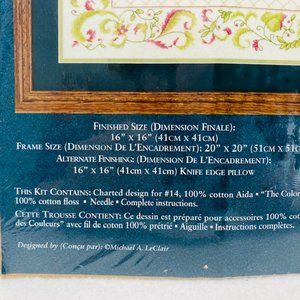 FINISHED SIZE (DIMENSION FINALE):
16" x 16" (41CM x 41CM)
FRAME SIZE (DIMENSION DE L'ENCADREMENT): 20" x 20" (51CM x 51C
ALTERNATE FINISHING: (DIMENSION DE L'ENCADREMENT):
16" x 16" (41CM x 41CM) KNIFE EDGE PILLOW
THIS KIT CONTAINS: Charted design for #14, 100% cotton Aida • "The Color
100% cotton floss • Needle • Complete instructions.
CETTE TROUSSE CONTIENT: Ce dessin est préparé pour accessoires 100% cot
des Couleurs" avec fil de coton 100% prétrié • Aiguille • Instructions complètes.
Designed by (Conçu par): ©Michael A. LeClair